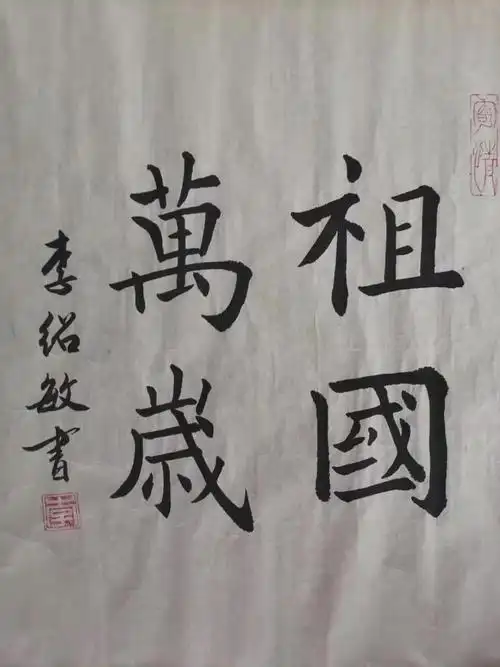 祖國
萬歲
李紹敏書